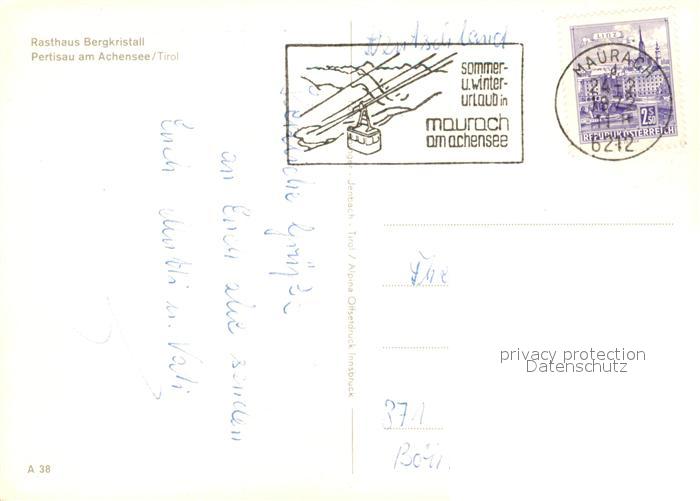 Rasthaus Bergkristall
Pertisau am Achensee/Tirol
Deutschland
sommer-
u.winter-
urlaub in
maurach
am achensee
LINZ
2.50
REPUBLIK ÖSTERREICH
MAURACH
6212
Grüße
an Euch alle senden
Euch Mutti u. Vati
Jenbach - Tirol / Alpina Offsetdruck Innsbruck
privacy protection
Datenschutz
371
A 38